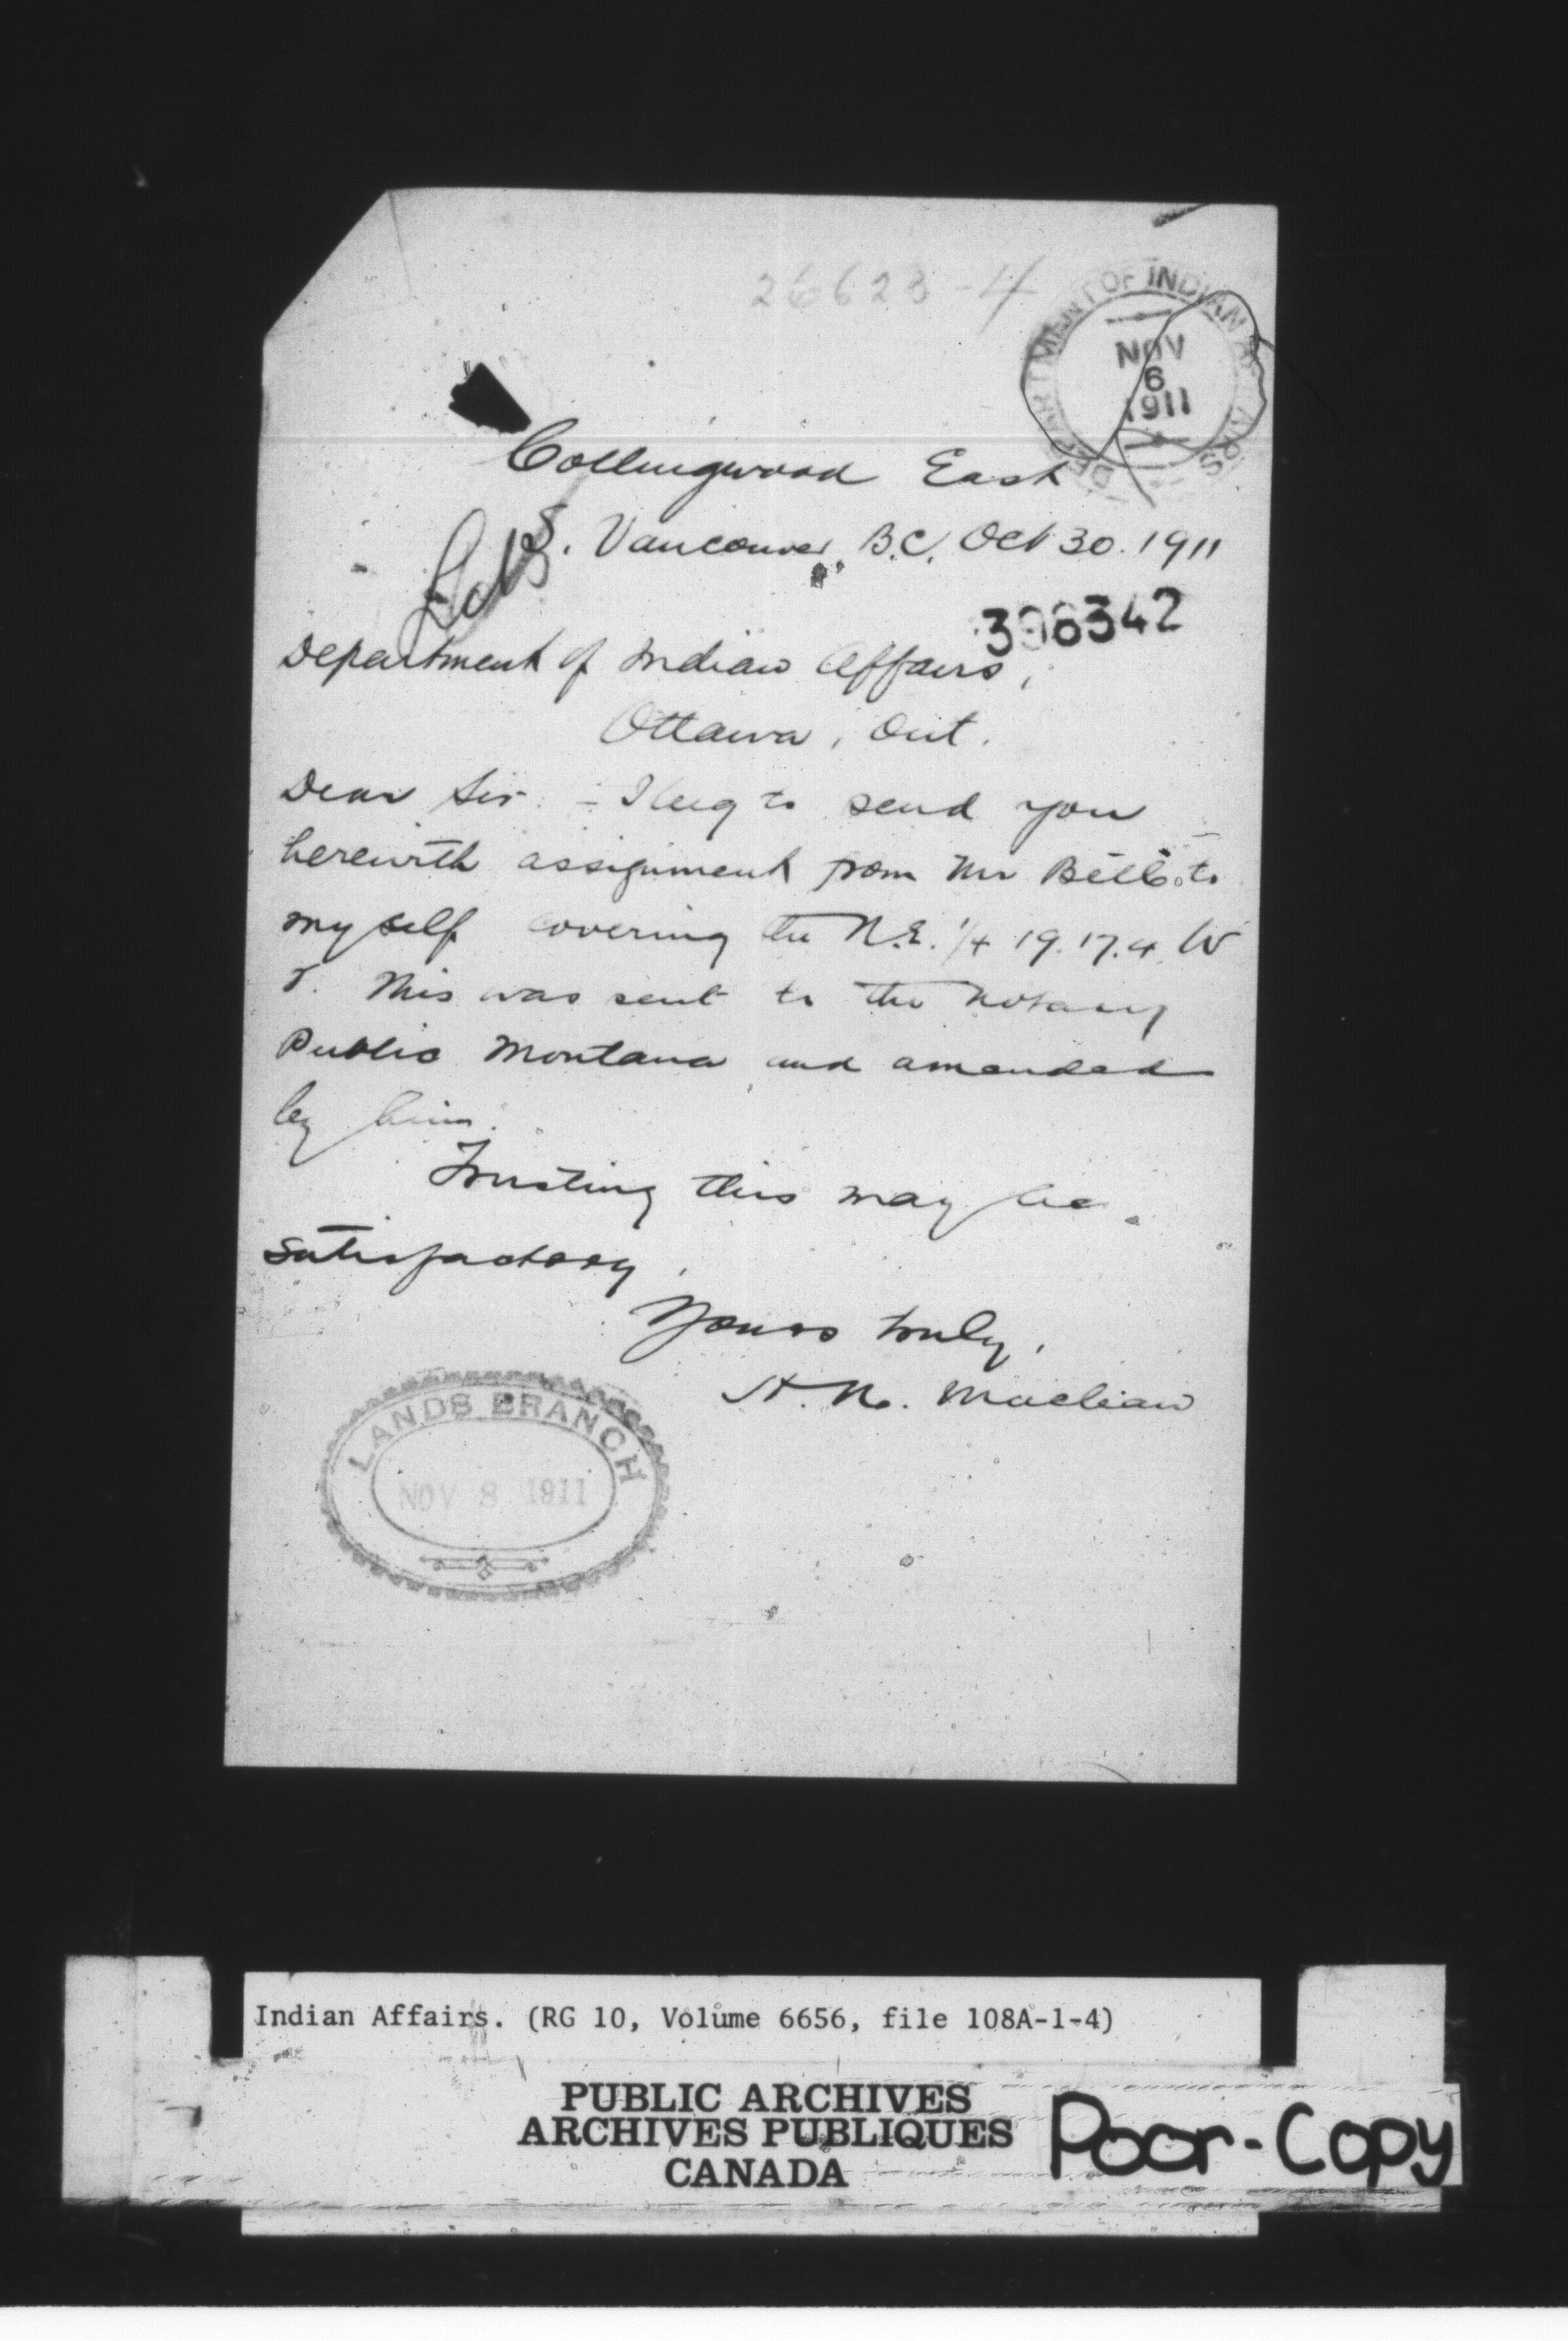 26623-4
DEPARTMENT OF INDIAN AFFAIRS
NOV
6
1911
Collingwood East
S. Vancouver, B.C. Oct 30. 1911
396342
Department of Indian Affairs,
Ottawa, Ont.
Dear Sir: - I beg to send you
herewith assignment from Mr to
myself covering the N.E. 1/4 19. 17. 4. W
This was sent to the Notary
Public Montana and amended
by him.
Trusting this may be
satisfactory,
Yours truly,
A. N. Maclean
LANDS BRANCH
NOV 8 1911
Indian Affairs. (RG 10, Volume 6656, file 108A-1-4)
PUBLIC ARCHIVES
ARCHIVES PUBLIQUES
CANADA
Poor-Copy